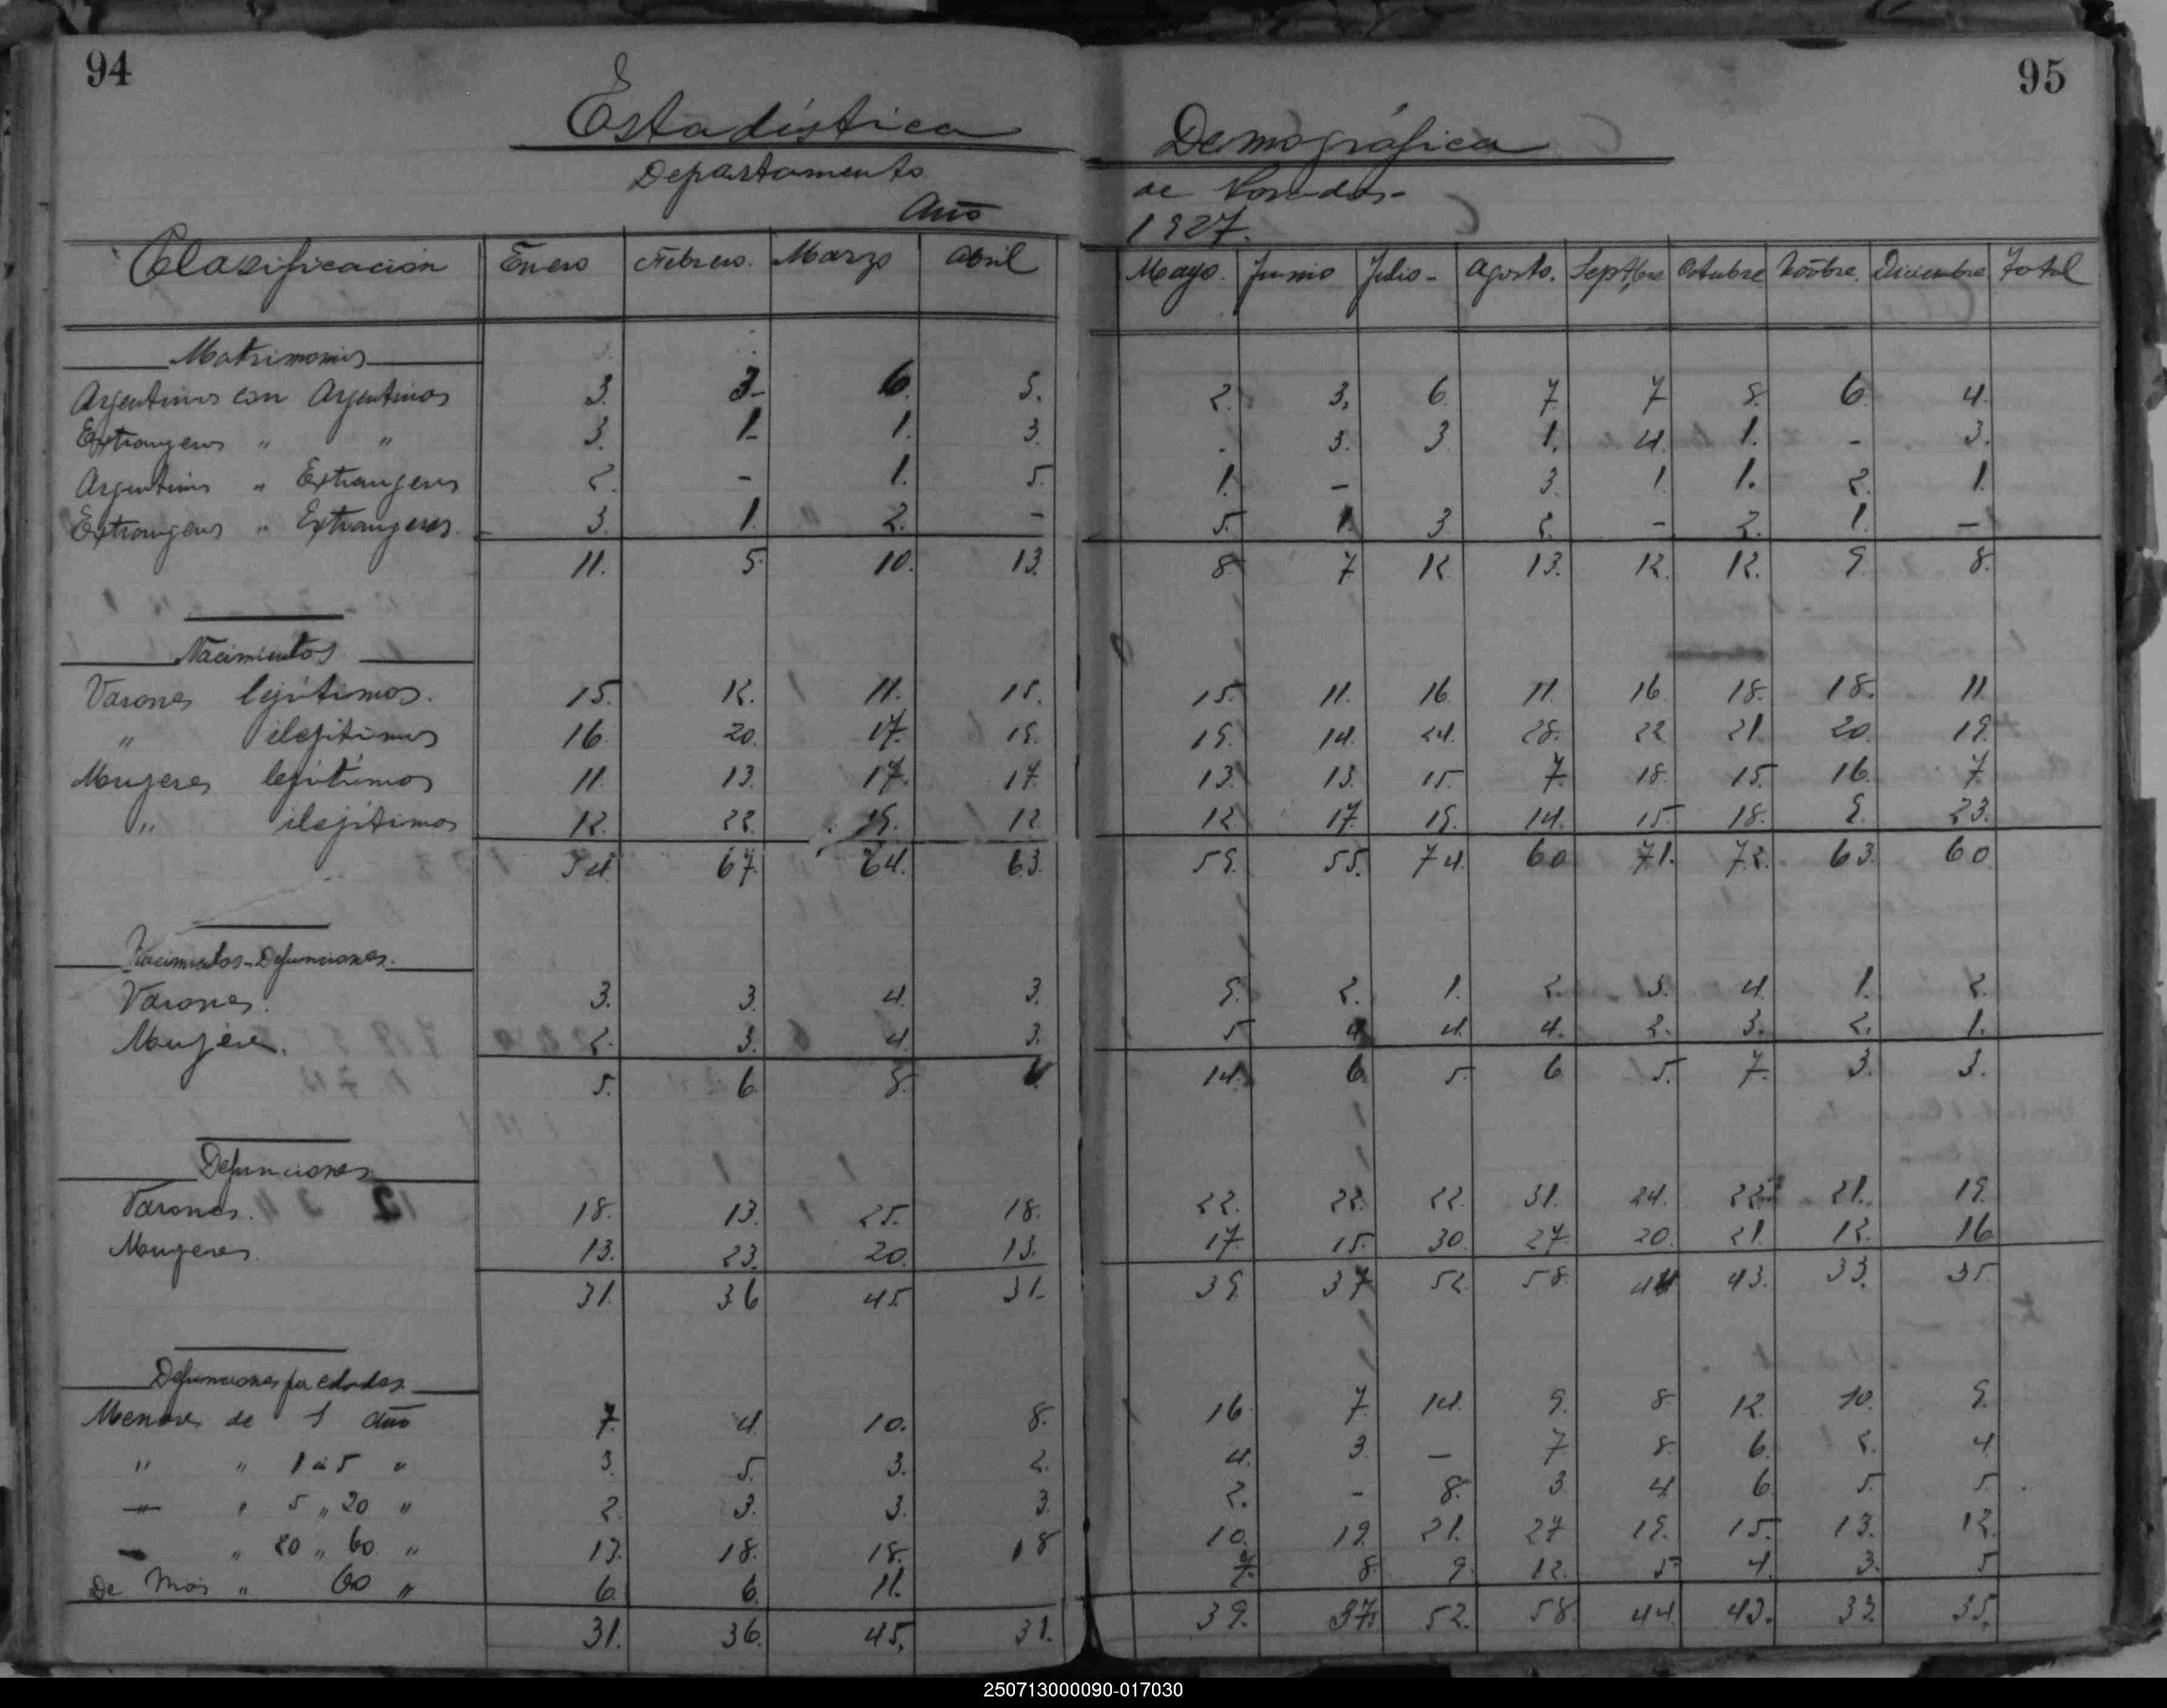 94
95
Estadística Demográfica
Departamento de Posadas-
Año 1927.
Clasificacion Enero Febrero. Marzo Abril Mayo. Junio Julio- Agosto. Septbre Octubre Novbre. Diciembre Total
Matrimonios
Argentinos con Argentinos 3. 3- 6. 5. 2. 3. 6. 7. 7 8. 6. 4.
Extrangeros " " 3. 1- 1. 3. . 3. 3 1. 4. 1. - 3.
Argentinos " Extrangeros 2. - 1. 5. 1. - 3. 1. 1. 2. 1.
Extrangeros " Extrangeros. 3. 1. 2. - 5. 1. 3 2. - 2. 1. -
11. 5. 10. 13. 8. 7 12 13. 12. 12. 9. 8.
Nacimientos
Varones lejítimos. 15. 12. 11. 15. 15. 11. 16. 11. 16 18. 18. 11
" ilejitimos 16. 20. 17. 19. 19. 14. 24. 28. 22 21. 20. 19.
Mugeres lejítimos 11. 13. 17. 17. 13. 13. 15. 7. 18. 15. 16. 7.
" ilejítimos 12. 22. 19. 12 12. 17. 19. 14. 15. 18. 9. 23.
54. 67. 64. 63. 59. 55. 74. 60 71. 72. 63. 60.
Nacimientos-Defunciones.
Varones. 3. 3. 4. 3. 9. 2. 1. 2. 3. 4. 1. 2.
Mugere. 2. 3. 4. 3. 5 4 4. 4. 2. 3. 2. 1.
5. 6. 8. 14. 6. 5. 6 5. 7. 3. 3.
Defunciones
Varones. 18. 13. 25. 18. 22. 22. 22. 31. 24. 22. 21. 19.
Mugeres. 13. 23. 20. 13. 17. 15. 30. 27. 20. 21. 12. 16.
31. 36 45. 31- 39. 37. 52. 58. 44 43. 33. 35.
Defunciones por edades
Menores de 1 año 7. 4. 10. 8. 16. 7. 14. 9. 8. 12. 10. 9.
" " 1 á 5 " 3. 5. 3. 2. 4. 3 - 7 8. 6. 2. 4
" " 5 " 20 " 2. 3. 3. 3. 2. - 8. 3. 4. 6 5. 5.
" 20 " 60 " 13. 18. 18. 18 10. 19. 21. 27 19. 15. 13. 12.
De Mas " 60 " 6. 6. 11. 7. 8. 9. 12. 5 4. 3. 5
31. 36. 45. 31. 39. 37. 52. 58. 44. 43. 33. 35.
250713000090-017030